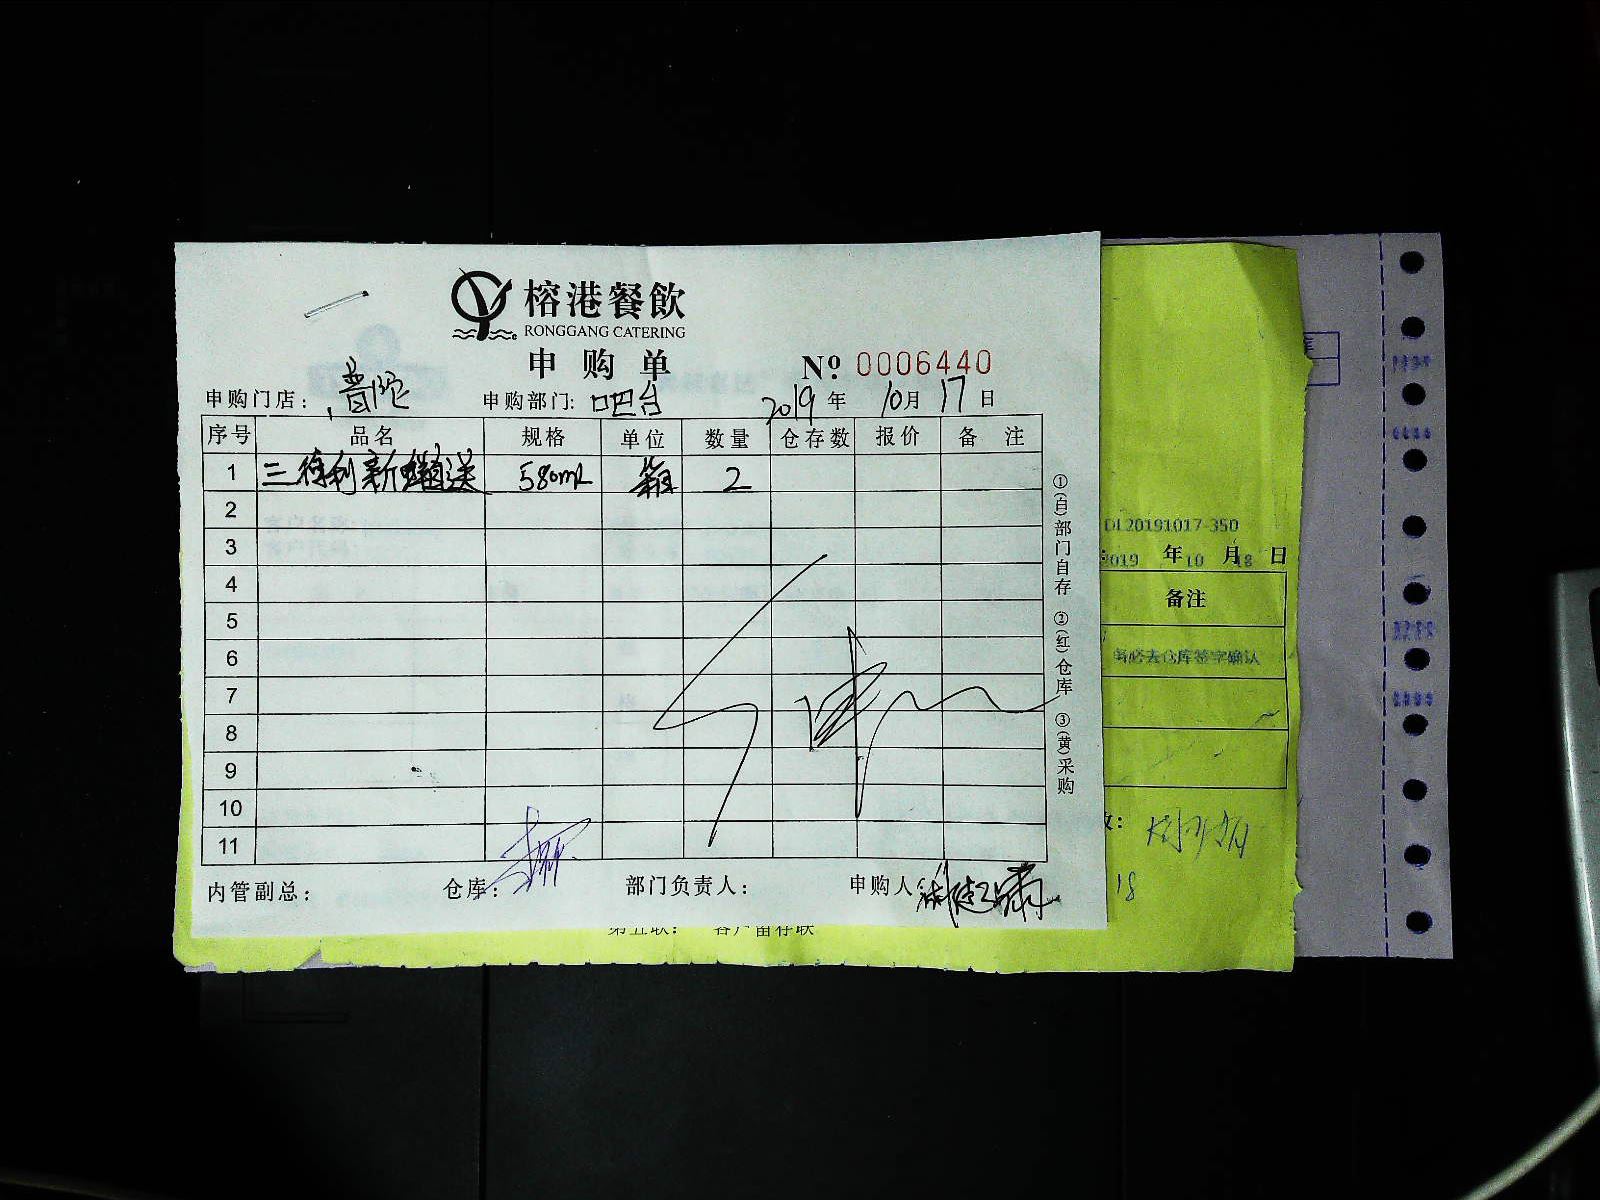 榕港餐飲
RONGGANG CATERING
申购单 Nº 0006440
申购门店: 普陀 申购部门: 吧台 2019 年 10 月 17 日
序号 品名 规格 单位 数量 仓存数 报价 备 注
1 三得利新鲜直送 580ml 箱 2
2
3
4
5
6
7
8
9
10
11
内管副总: 仓库: 部门负责人: 申购人:
①(白)部门自存 ②(红)仓库 ③(黄)采购
DL20191017-350
2019 年 10 月 18 日
备注
务必去仓库签字确认
18
第五联: 客户留存联